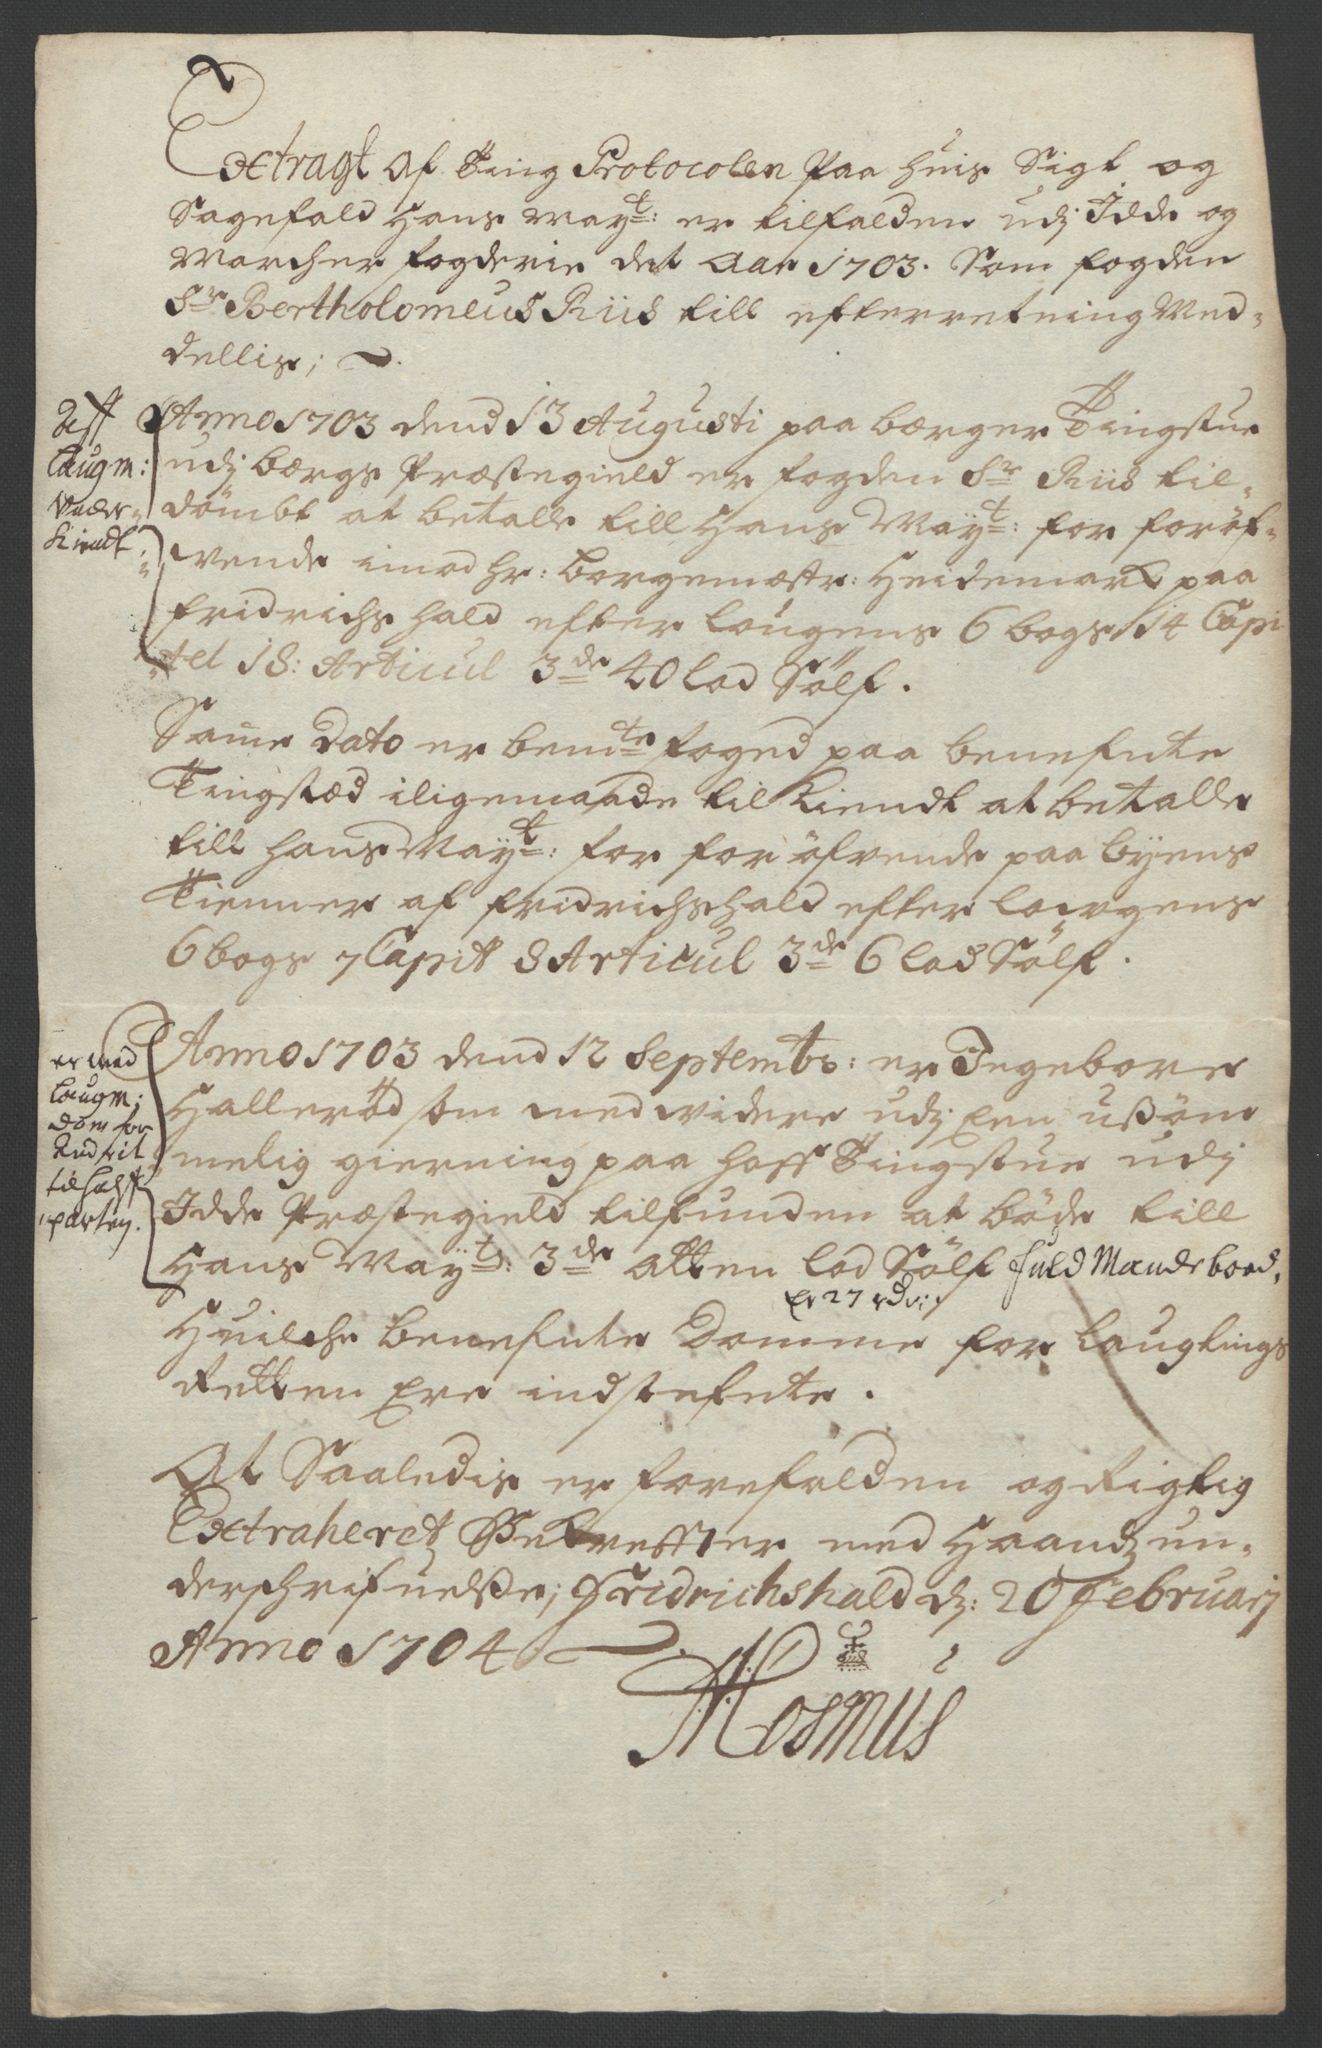 Extragt Af Ting Protocolen Paa huis Sigt og
Sagefald Hans May:t er tilfalden udj Idde og
Marcher fogderie det Aar 1703. Som fogden
Sr Bertholomeus Riis till efterretning Med-
dellis;
Aff
Laugm:
Under-
kiendt.
Anno 1703 dend 13 Augusti paa bærger Tingstue
udj bærgs Præstegield er fogden Sr Riis til-
dömbt at betalle till Hans May:t for foröf-
vende imod hr: borgemestr: Heidemark paa
fridrichs hald efter lougens 6 bogs 14 Capi
tel 18: Articul 3de 40 lod Sölf.
Same Dato er bemte foged paa benefnte
Tingstæd iligemaade tilkiendt at betalle
till hans May:t for for öfvende paa byens
Tienner af fridrichshald efter lowgens
6 bogs 7 Capit 8 Articul 3de 6 lod Sölf.
er med
Laugm:
dom for
Andrit
til halff
parten.
Anno 1703 dend 12 Septembr: er Ingebore
Halleröd som med videre udj Een usöm
melig gierning paa hoff Tingstue udj
Idde Præstegield tilfunden at böde till
Hans May:ts 3de Atten lod Sölf fuld Mande bood.
Er 27 rdr:
Huilche benefnte Domme for Laugtings
Retten Ere indstefnte.
At Saaledis er forefalden og Rigtig
Extraheret Bekreffter med Haandz un-
derschrifuelsse; Fridrichshald d: 20 Februarij
Anno 1704
NRosmus